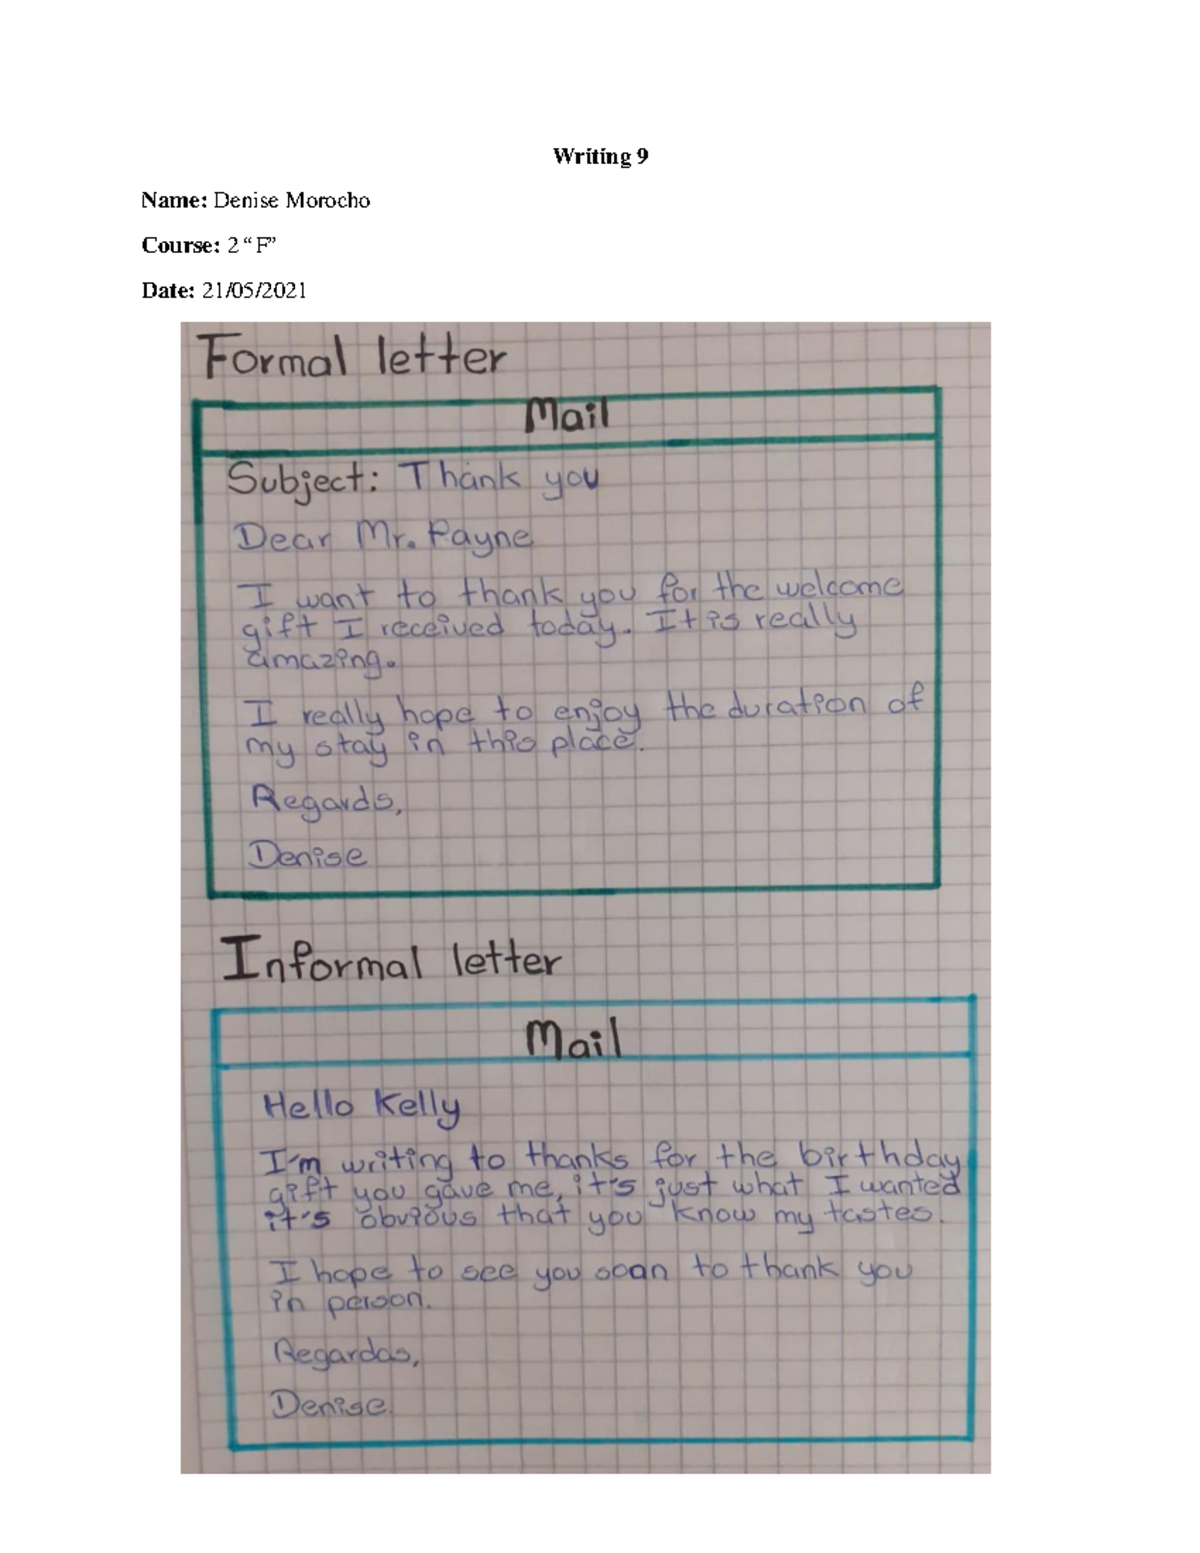 Writing 9
Name: Denise Morocho
Course: 2 “F”
Date: 21/05/2021
Formal letter
Mail
Subject: Thank you
Dear Mr. Payne
I want to thank you for the welcome
gift I received today. It is really
amazing.
I really hope to enjoy the duration of
my stay in this place.
Regards,
Denise
Informal letter
Mail
Hello Kelly
I'm writing to thanks for the birthday
gift you gave me, it's just what I wanted
it's obvious that you know my tastes.
I hope to see you soon to thank you
in person.
Regardas,
Denise.